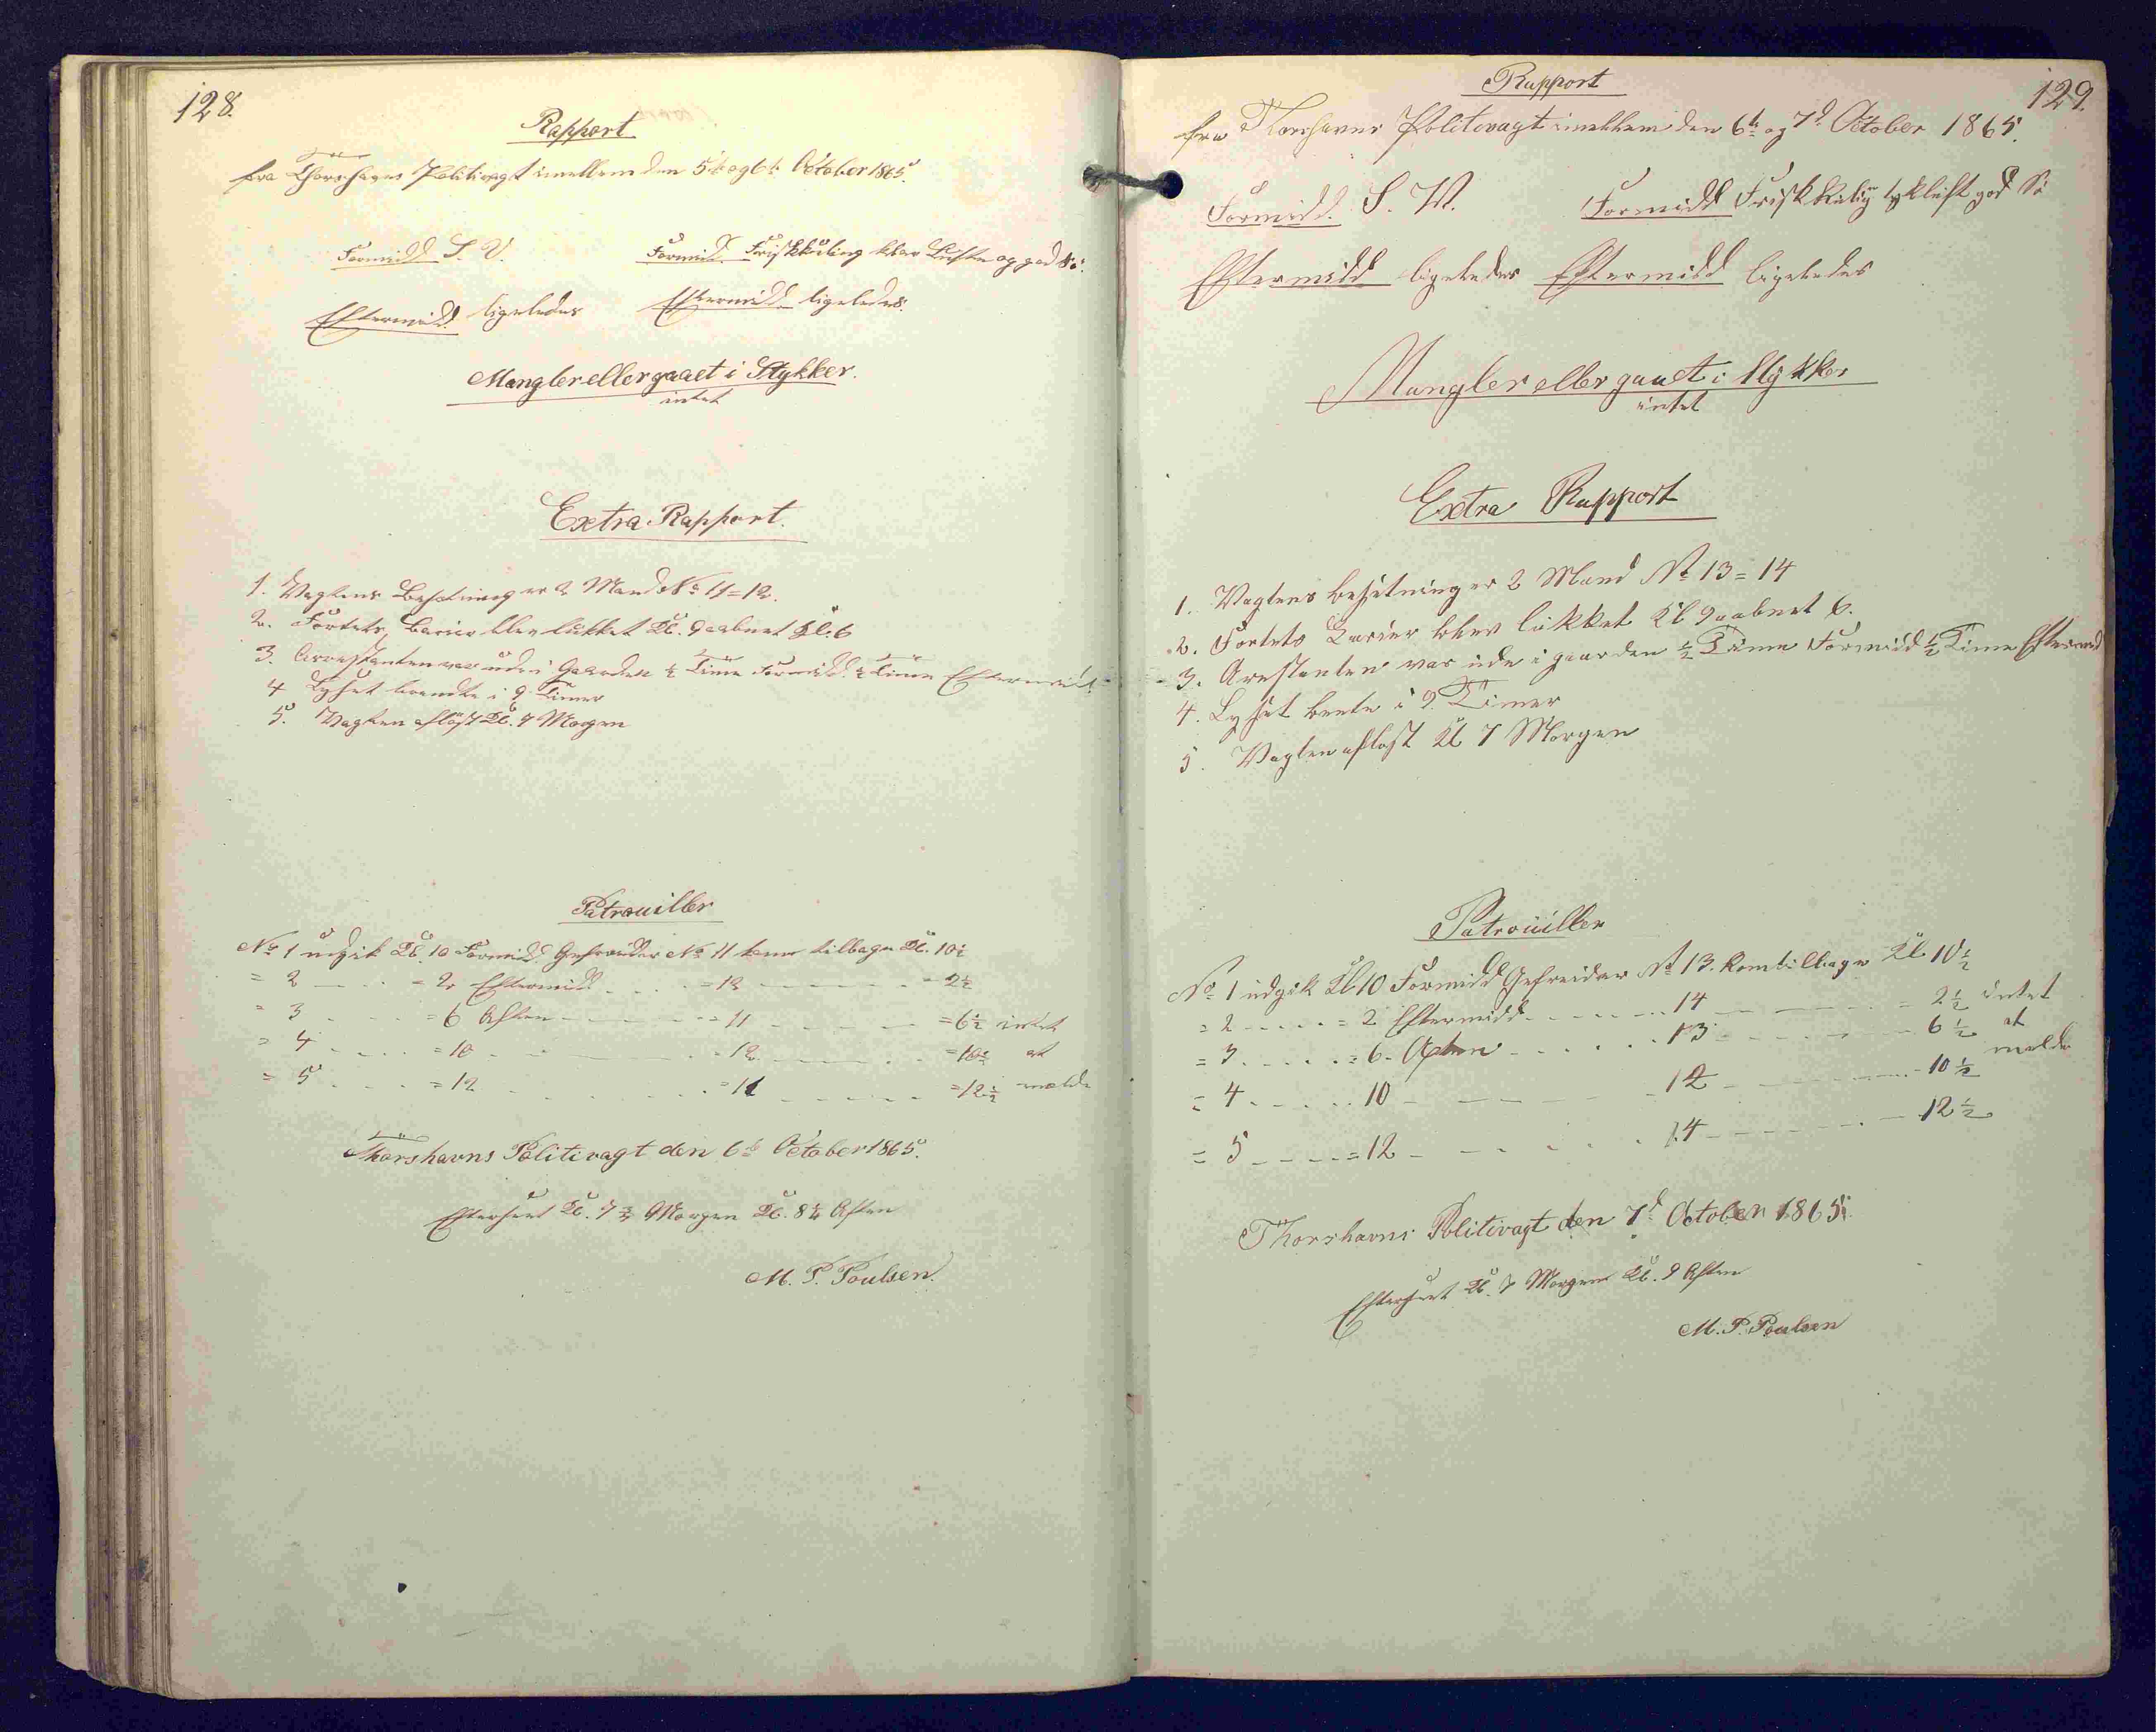 128.
Rapport
fra Thorshavns Politivagt imellem den 5te og 6te October 1865.
Formidd S. V. Formidd Friskkuling klar Luft og god Sö.
Eftermidd ligeledes Eftermidd ligeledes.
Mangler eller gaaet i Stykker.
intet
Extra Rapport.
1. Vagtens Besetning er 2 Mand No 11 = 12.
2. Fortets Barier blev lukket Kl. 9 aabnet Kl. 6
3. Arrestanten var ude i Gaarden ½ Time Formidd. ½ Time Eftermidd.
4 Lyset brendte i 9 Timer
5. Vagten aflöst Kl. 7 Morgen
Patrouiller
No 1 udgik Kl. 10 Formidd Gefreider No 11 kom tilbage Kl. 10½
= 2 - - = 2 Eftermidd - - = 12 - - - = 2½
= 3 - - = 6 Aften - - = 11 - - - = 6½ intet
= 4 - - = 10 - - = 12 - - - = 10½ at
= 5 - - = 12 - - = 11 - - - = 12½ melde
Thorshavns Politivagt den 6te October 1865.
Efterseet Kl. 7¾ Morgen Kl. 8¼ Aften
M. P. Poulsen.
129.
Rapport
fra Thorshavns Politivagt imellem den 6te og 7d October 1865.
Formidd. S. V. Formidd Frisk Kuling tyk luft god Sö
Eftermidd ligeledes Eftermidd ligeledes
Mangler eller gaaet i Stykker
intet
Extra Rapport
1. Vagtens besetning er 2 Mand No 13 = 14
2. Fortets Barier blev lükket Kl 9 aabnet 6.
3. Arestanten var ude i gaarden ½ Time Formidd ½ Time Eftermid
4. Lyset brente i 9 Timer
5. Vagten aflöst Kl 7 Morgen
Patrouiller
No 1 udgik Kl 10 Formidd Gefreider No 13. kom tilbage Kl 10½
= 2 - - - = 2 Eftermidd - - - 14 - - - = 2½ intet
= 3 - - - = 6 - Aften - - - 13 - - - 6½ at
= 4 - - - 10 - - - 12 - - - 10½ melde
= 5 - - - = 12 - - - 14 - - - 12½
Thorshavns Politivagt den 7d October 1865.
Efterseet Kl. 7 Morgen Kl. 9 Aften
M. P. Poulsen